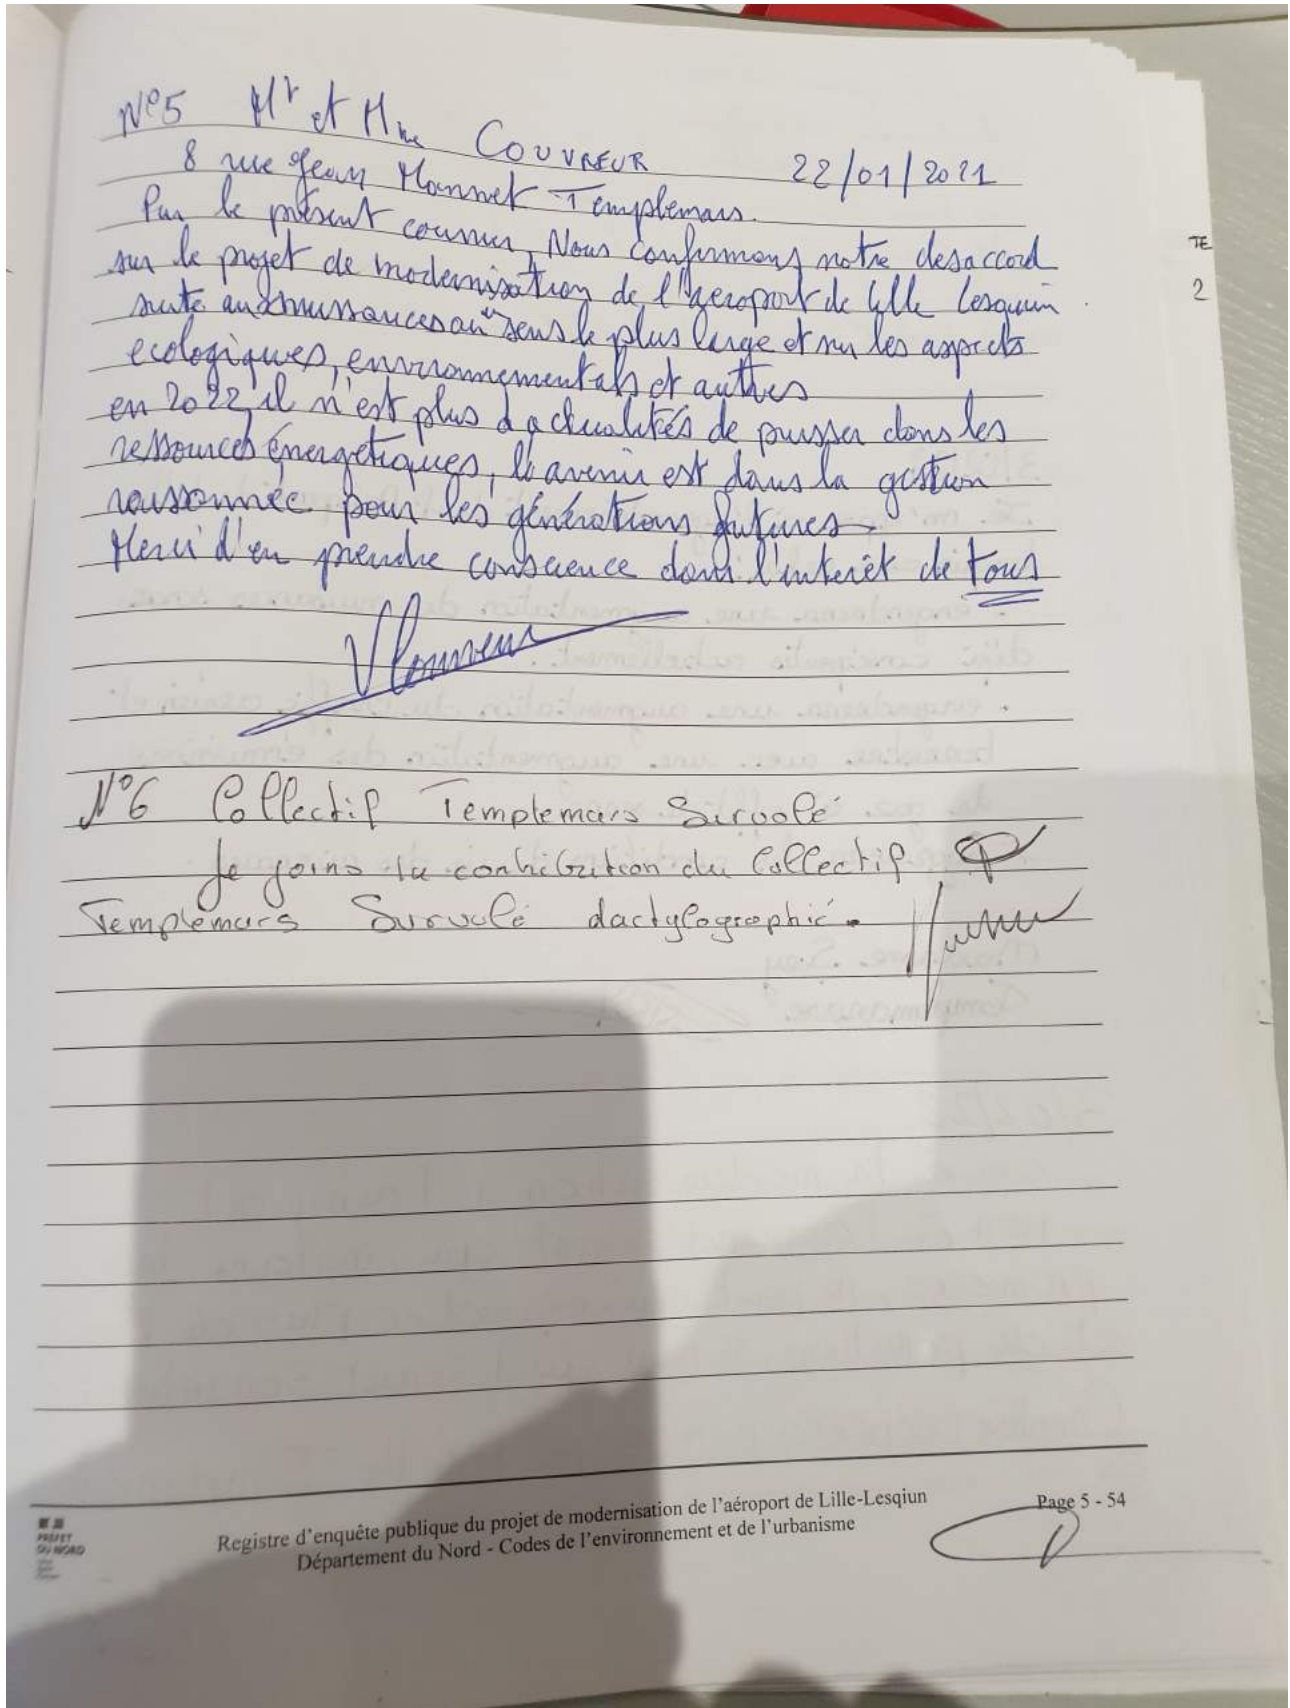 N°5 Mr et Mme COUVREUR 22/01/2021
8 rue Jean Monnet Templemars.
Par le présent courrier, Nous confirmons notre desaccord
sur le projet de modernisation de l'aeroport de Lille Lesquin
suite aux nuisances au sens le plus large et sur les aspects
ecologiques, environnementals et autres
en 2022, il n'est plus d'actualités de puiser dans les
ressources énergétiques, l'avenir est dans la gestion
raisonnée pour les générations futures.
Merci d'en prendre conscience dans l'interêt de tous
TE
2
N°6 Collectif Templemars Survolé
Je joins la contribution du Collectif
Templemars Survolé dactylographié.
PREFET
DU NORD
Registre d'enquête publique du projet de modernisation de l'aéroport de Lille-Lesqiun
Département du Nord - Codes de l'environnement et de l'urbanisme
Page 5 - 54